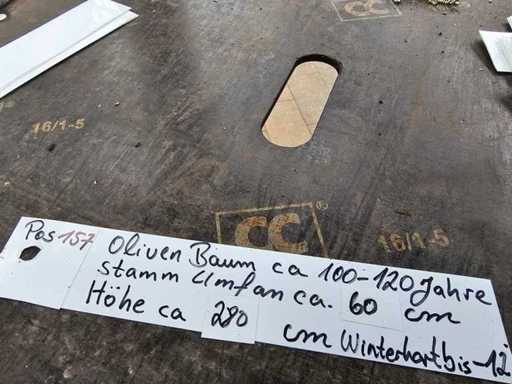 CC
16/1-5
CC®
16/1-5
Pos 157 Oliven Baum ca 100-120 Jahre
stamm Umfan ca. 60 cm
Höhe ca 280 cm Winterhart bis -12